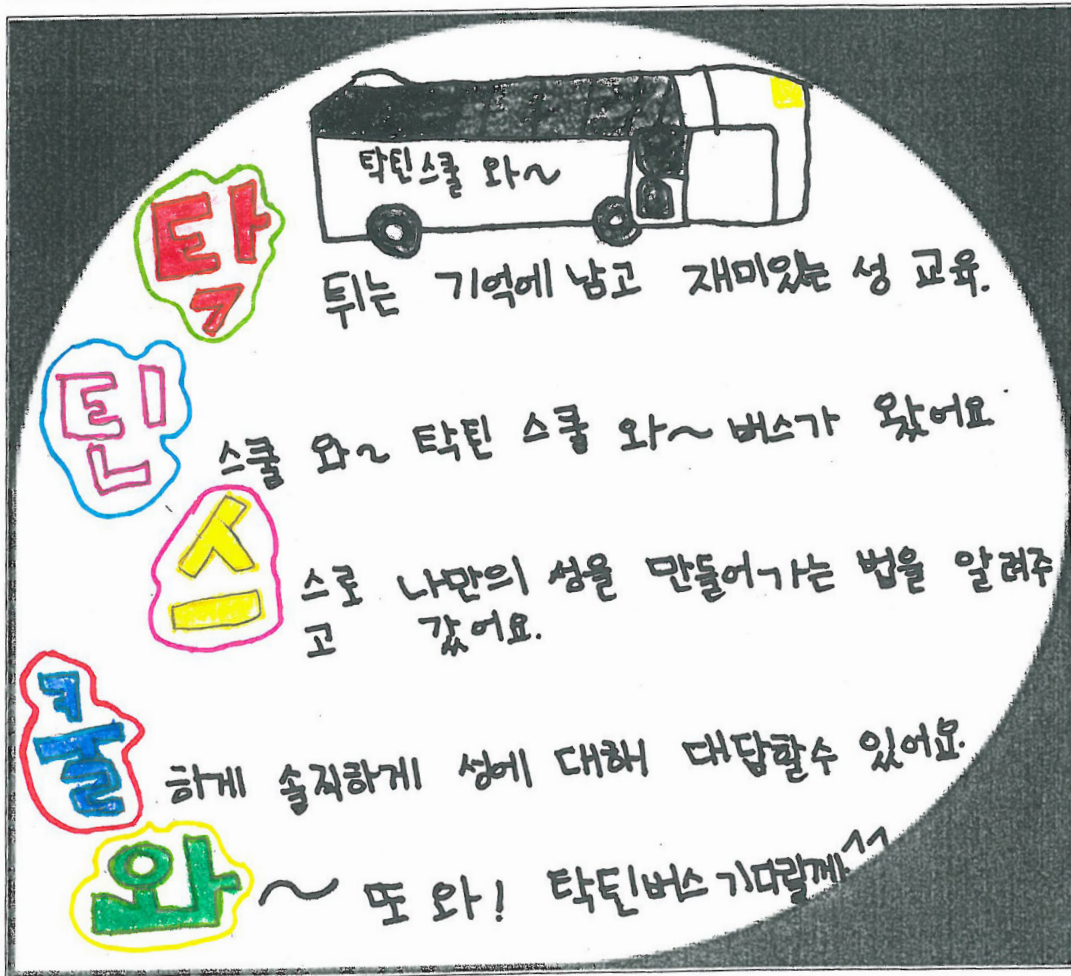 탁틴스쿨 와~
탁 튀는 기억에 남고 재미있는 성 교육.
틴 스쿨 와~ 탁틴 스쿨 와~ 버스가 왔어요
스 스로 나만의 성을 만들어가는 법을 알려주
고 갔어요.
쿨 하게 솔직하게 성에 대해 대답할수 있어요.
와 ~ 또 와! 탁틴버스 기다릴께^^